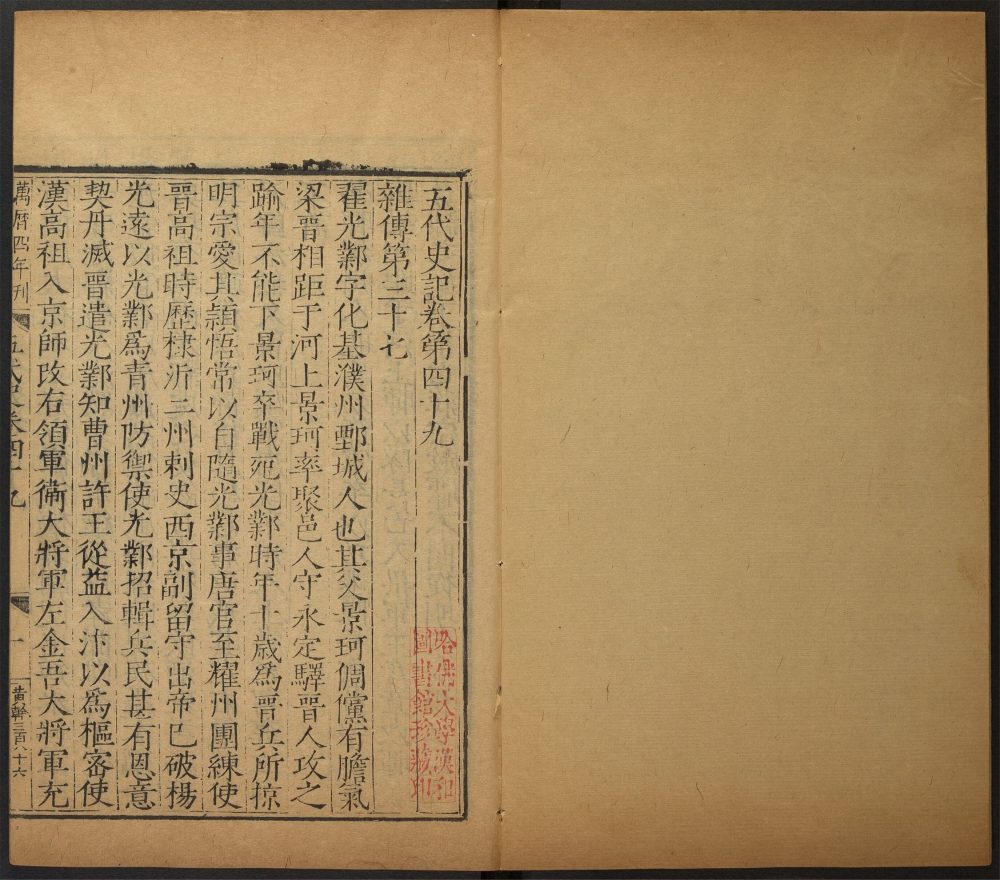 五代史記卷第四十九
雜傳第三十七
翟光鄴字化基濮州鄄城人也其父景珂倜儻有膽氣
梁晉相距于河上景珂率聚邑人守永定驛晉人攻之
踰年不能下景珂卒戰死光鄴時年十歲爲晉兵所掠
明宗愛其穎悟常以自隨光鄴事唐官至耀州團練使
晉高祖時歷棣沂二州刺史西京副留守出帝已破楊
光遠以光鄴爲青州防禦使光鄴招輯兵民甚有恩意
契丹滅晉遣光鄴知曹州許王從益入汴以爲樞密使
漢高祖入京師改右領軍衛大將軍左金吾大將軍充
萬曆四年刊
五代史卷四十九
一
黄幹三百八十六
哈佛大學漢和
圖書館珍藏印